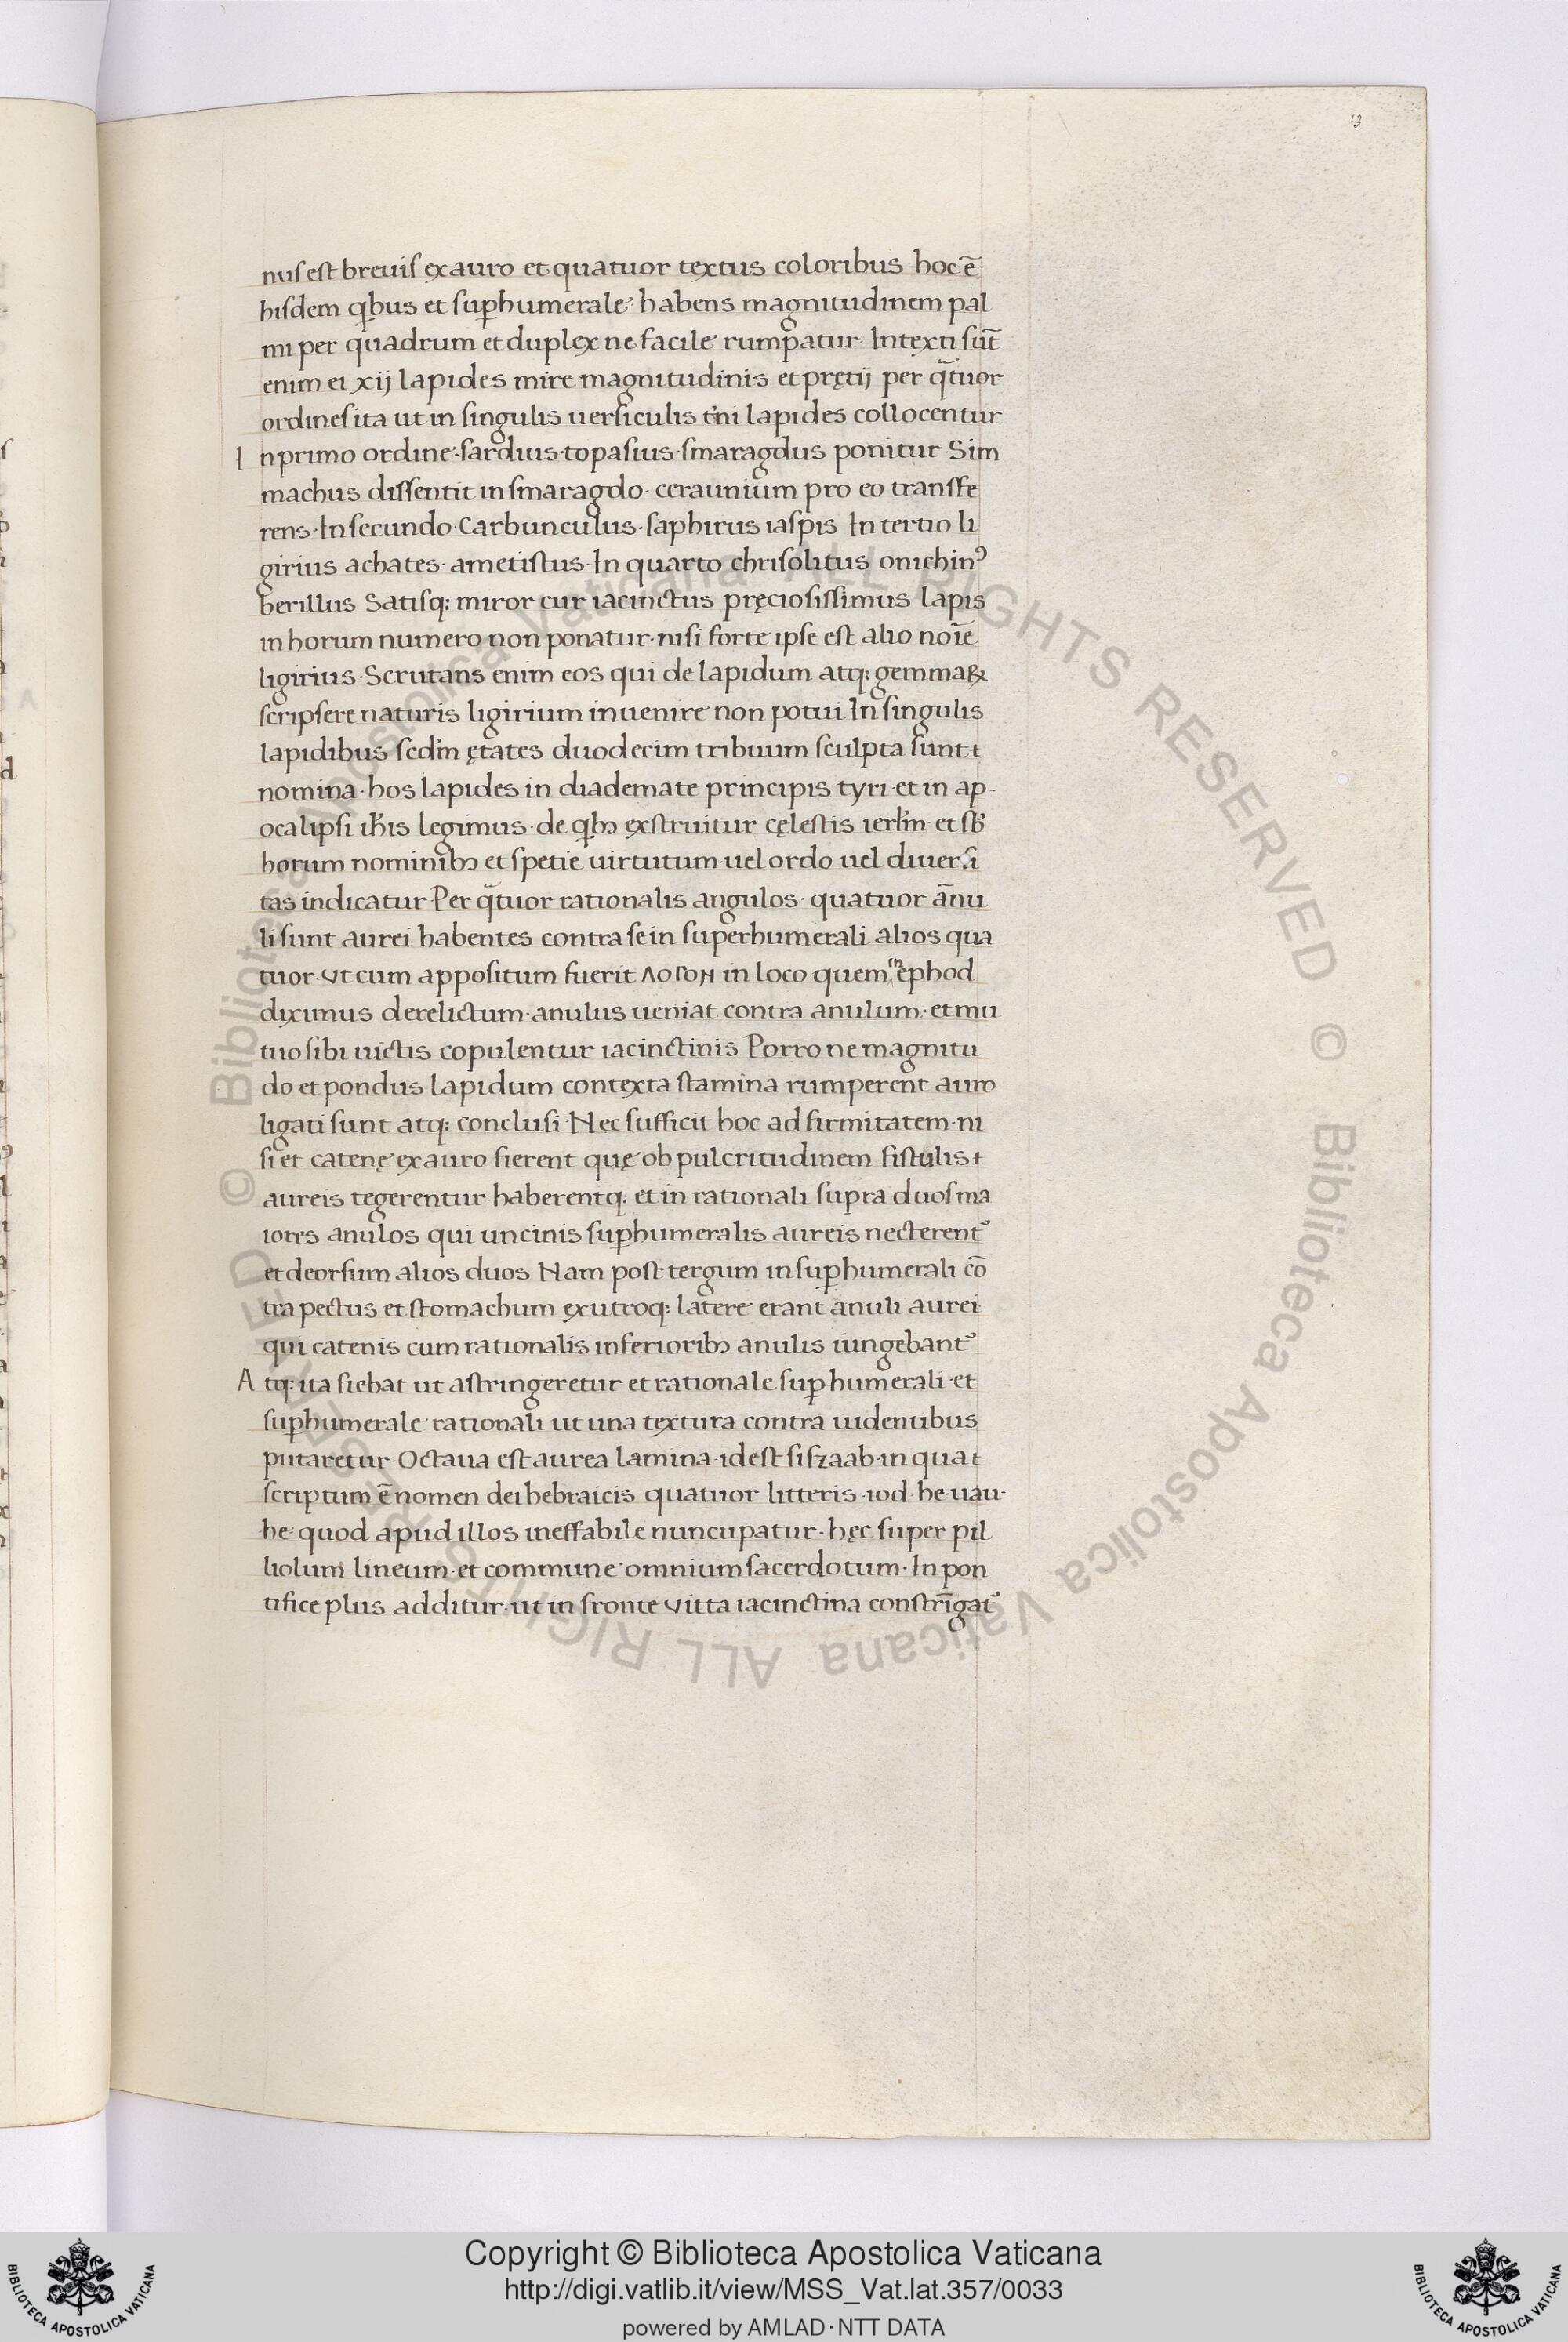 13
nus est breuis ex auro et quatuor textus coloribus hoc ē
hisdem qͥbus et suꝑhumerale habens magnitudinem pal
mi per quadrum et duplex ne facile rumpatur Intexti sūt
enim ei xij lapides mire magnitudinis et prętij per qᷓtuor
ordines ita ut in singulis uersiculis t̾ni lapides collocentur
In primo ordine·sardius·topasius·smaragdus ponitur Sim
machus dissentit in smaragdo· ceraunium pro eo transfe
rens·In secundo·Carbunculus·saphirus iaspis In tertio li
girius achates· ametistus·In quarto chrisolitus onichinꝰ
berillus Satisq: miror cur iacinctus pręciosissimus lapis
in horum numero non ponatur·nisi forte ipse est alio noīe
ligirius·Scrutans enim eos qui de lapidum atq: gemmaꝝ
scripsere naturis ligirium inuenire non potui In singulis
lapidibus sedm̄ ętates duodecim tribuum sculpta sunt t
nomina·hos lapides in diademate principis tyri·et in ap-
ocalipsi ih̄is legimus·de qͥbꝫ exstruitur cęlestis ierl̄m·et sb̄
horum nominibꝫ et spetie uirtutum·uel ordo uel diuersi
tas indicatur Per qᷓtuor rationalis angulos· quatuor ānu
li sunt aurei habentes contra se in superhumerali alios qua
tuor·Vt cum appositum fuerit ΛΟΓΟΝ in loco quem in ephod
diximus derelictum·anulus ueniat contra anulum·et mu
tuo sibi uictis copulentur iacinctinis Porro ne magnitu
do et pondus lapidum contexta stamina rumperent auro
ligati sunt atq: conclusi·Nec sufficit hoc ad firmitatem·ni
si et catenę ex auro fierent quę ob pulcritudinem fistulis t
aureis tegerentur·haberentq: et in rationali supra duos ma
iores anulos qui uncinis suꝑhumeralis aureis necterent᷑
et deorsum alios duos Nam post tergum in suꝑhumerali cō
tra pectus et stomachum ex utroq: latere erant anuli aurei
qui catenis cum rationalis inferioribꝫ anulis iungebant᷑
Atq: ita fiebat ut astringeretur et rationale suꝑhumerali·et
suꝑhumerale rationali ut una textura contra uidentibus
putaretur·Octaua est aurea lamina·id est sis zaab·in qua t
scriptum ē nomen dei hebraicis quatuor litteris·iod·he·uau·
he·quod apud illos ineffabile nuncupatur·hęc super pil
liolum lineum·et commune omnium sacerdotum·In pon
tifice plus additur·ut in fronte Vitta iacinctina constrīgat᷑
© Biblioteca Apostolica Vaticana ALL RIGHTS RESERVED
© Biblioteca Apostolica Vaticana ALL RIGHTS RESERVED
Copyright © Biblioteca Apostolica Vaticana
http://digi.vatlib.it/view/MSS_Vat.lat.357/0033
powered by AMLAD·NTT DATA
BIBLIOTECA APOSTOLICA VATICANA
BIBLIOTECA APOSTOLICA VATICANA